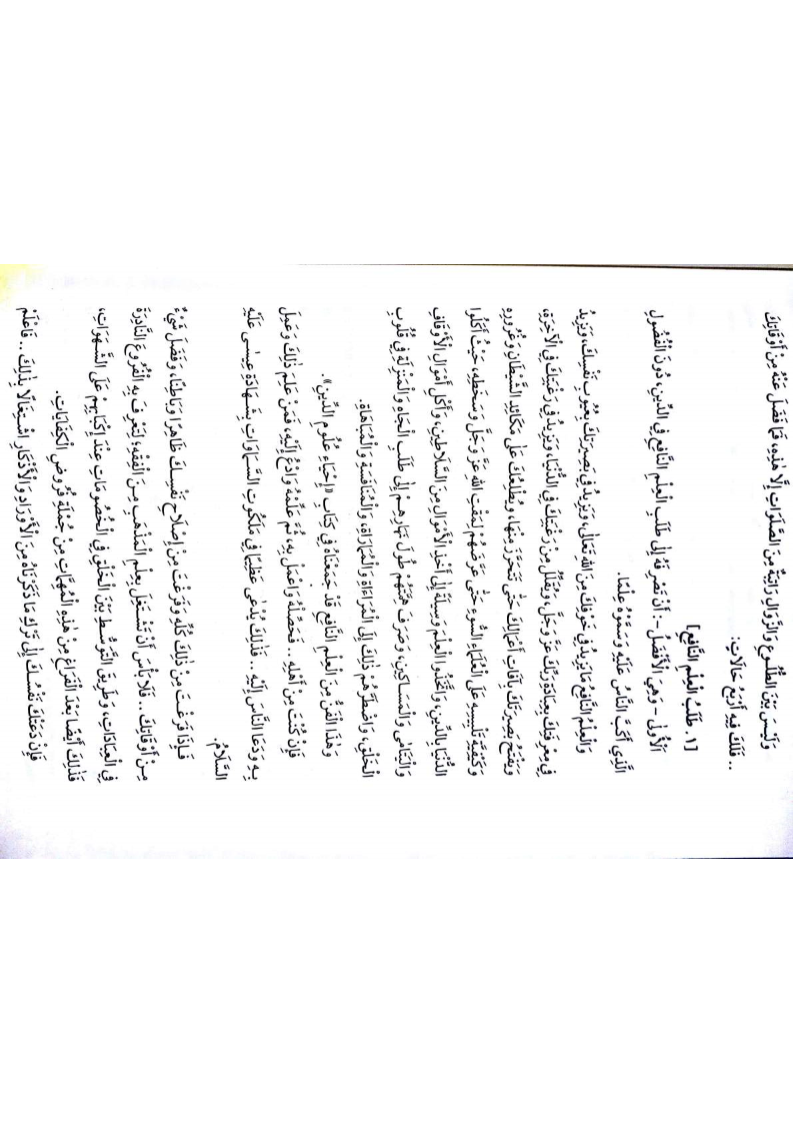 وَلَيْسَ بَيْنَ الطُّلُوعِ وَالزَّوَالِ رَاتِبَةٌ مِنَ الصَّلَوَاتِ إِلَّا هٰذِهِ، فَمَا فَضَلَ عَنْهُ مِنْ أَوْقَاتِكَ
.. فَلَكَ فِيهِ أَرْبَعُ حَالَاتٍ:
[١. طَلَبُ الْعِلْمِ النَّافِعِ]
الْأُولَىٰ - وَهِيَ الْأَفْضَلُ -: أَنْ تَصْرِفَهُ إِلَىٰ طَلَبِ الْعِلْمِ النَّافِعِ فِي الدِّينِ، دُونَ الْفُضُولِ
الَّذِي أَكَبَّ النَّاسُ عَلَيْهِ وَسَمَّوْهُ عِلْمًا.
وَالْعِلْمُ النَّافِعُ مَا يَزِيدُ فِي خَوْفِكَ مِنَ اللهِ تَعَالَىٰ، وَيَزِيدُ فِي بَصِيرَتِكَ بِعُيُوبِ نَفْسِكَ، وَيَزِيدُ
فِي مَعْرِفَتِكَ بِعِبَادَةِ رَبِّكَ عَزَّ وَجَلَّ، وَيُقَلِّلُ مِنْ رَغْبَتِكَ فِي الدُّنْيَا، وَيَزِيدُ فِي رَغْبَتِكَ فِي الْآخِرَةِ،
وَيَفْتَحُ بَصِيرَتَكَ بِآفَاتِ أَعْمَالِكَ حَتَّىٰ تَحْتَرِزَ مِنْهَا، وَيُطْلِعُكَ عَلَىٰ مَكَايِدِ الشَّيْطَانِ وَغُرُورِهِ
وَكَيْفِيَّةِ تَلْبِيسِهِ عَلَىٰ الْعُلَمَاءِ السُّوءِ حَتَّىٰ عَرَّضَهُمْ لِمَقْتِ اللهِ عَزَّ وَجَلَّ وَسَخَطِهِ، حَيْثُ أَكَلُوا
الدُّنْيَا بِالدِّينِ، وَاتَّخَذُوا الْعِلْمَ وَسِيلَةً إِلَىٰ أَخْذِ الْأَمْوَالِ مِنَ السَّلَاطِينِ، وَأَكْلِ أَمْوَالِ الْأَوْقَافِ
وَالْيَتَامَىٰ وَالْمَسَاكِينِ، وَصَرَفَ هِمَّتَهُمْ طُولَ نَهَارِهِمْ إِلَىٰ طَلَبِ الْجَاهِ وَالْمَنْزِلَةِ فِي قُلُوبِ
الْخَلْقِ، وَاضْطَرَّهُمْ ذٰلِكَ إِلَىٰ الْمُرَاءَاةِ وَالْمُمَارَاةِ، وَالْمُنَافَسَةِ وَالْمُبَاهَاةِ.
وَهٰذَا الْفَنُّ مِنَ الْعِلْمِ النَّافِعِ قَدْ جَمَعْنَاهُ فِي كِتَابِ «إِحْيَاءِ عُلُومِ الدِّينِ».
فَإِنْ كُنْتَ مِنْ أَهْلِهِ .. فَحَصِّلْهُ وَاعْمَلْ بِهِ، ثُمَّ عَلِّمْهُ وَادْعُ إِلَيْهِ، فَمَنْ عَلِمَ ذٰلِكَ وَعَمِلَ
بِهِ وَدَعَا النَّاسَ إِلَيْهِ .. فَذٰلِكَ يُدْعَىٰ عَظِيمًا فِي مَلَكُوتِ السَّمَاوَاتِ بِشَهَادَةِ عِيسَىٰ عَلَيْهِ
السَّلَامُ.
فَإِذَا فَرَغْتَ مِنْ ذٰلِكَ كُلِّهِ وَفَرَغْتَ مِنْ إِصْلَاحِ نَفْسِكَ ظَاهِرًا وَبَاطِنًا، وَفَضَلَ شَيْءٌ
مِنْ أَوْقَاتِكَ .. فَلَا بَأْسَ أَنْ تَشْتَغِلَ بِعِلْمِ الْمَذْهَبِ مِنَ الْفِقْهِ؛ لِتَعْرِفَ بِهِ الْفُرُوعَ النَّادِرَةَ
فِي الْعِبَادَاتِ، وَطَرِيقَ التَّوَسُّطِ بَيْنَ الْخَلْقِ فِي الْخُصُومَاتِ عِنْدَ إِكْبَابِهِمْ عَلَىٰ الشَّهَوَاتِ،
فَذٰلِكَ أَيْضًا بَعْدَ الْفَرَاغِ مِنْ هٰذِهِ الْمُهِمَّاتِ مِنْ جُمْلَةِ فُرُوضِ الْكِفَايَاتِ.
فَإِنْ دَعَتْكَ نَفْسُكَ إِلَىٰ تَرْكِ مَا ذَكَرْنَاهُ مِنَ الْأَوْرَادِ وَالْأَذْكَارِ اسْتِثْقَالًا بِذٰلِكَ .. فَاعْلَمْ